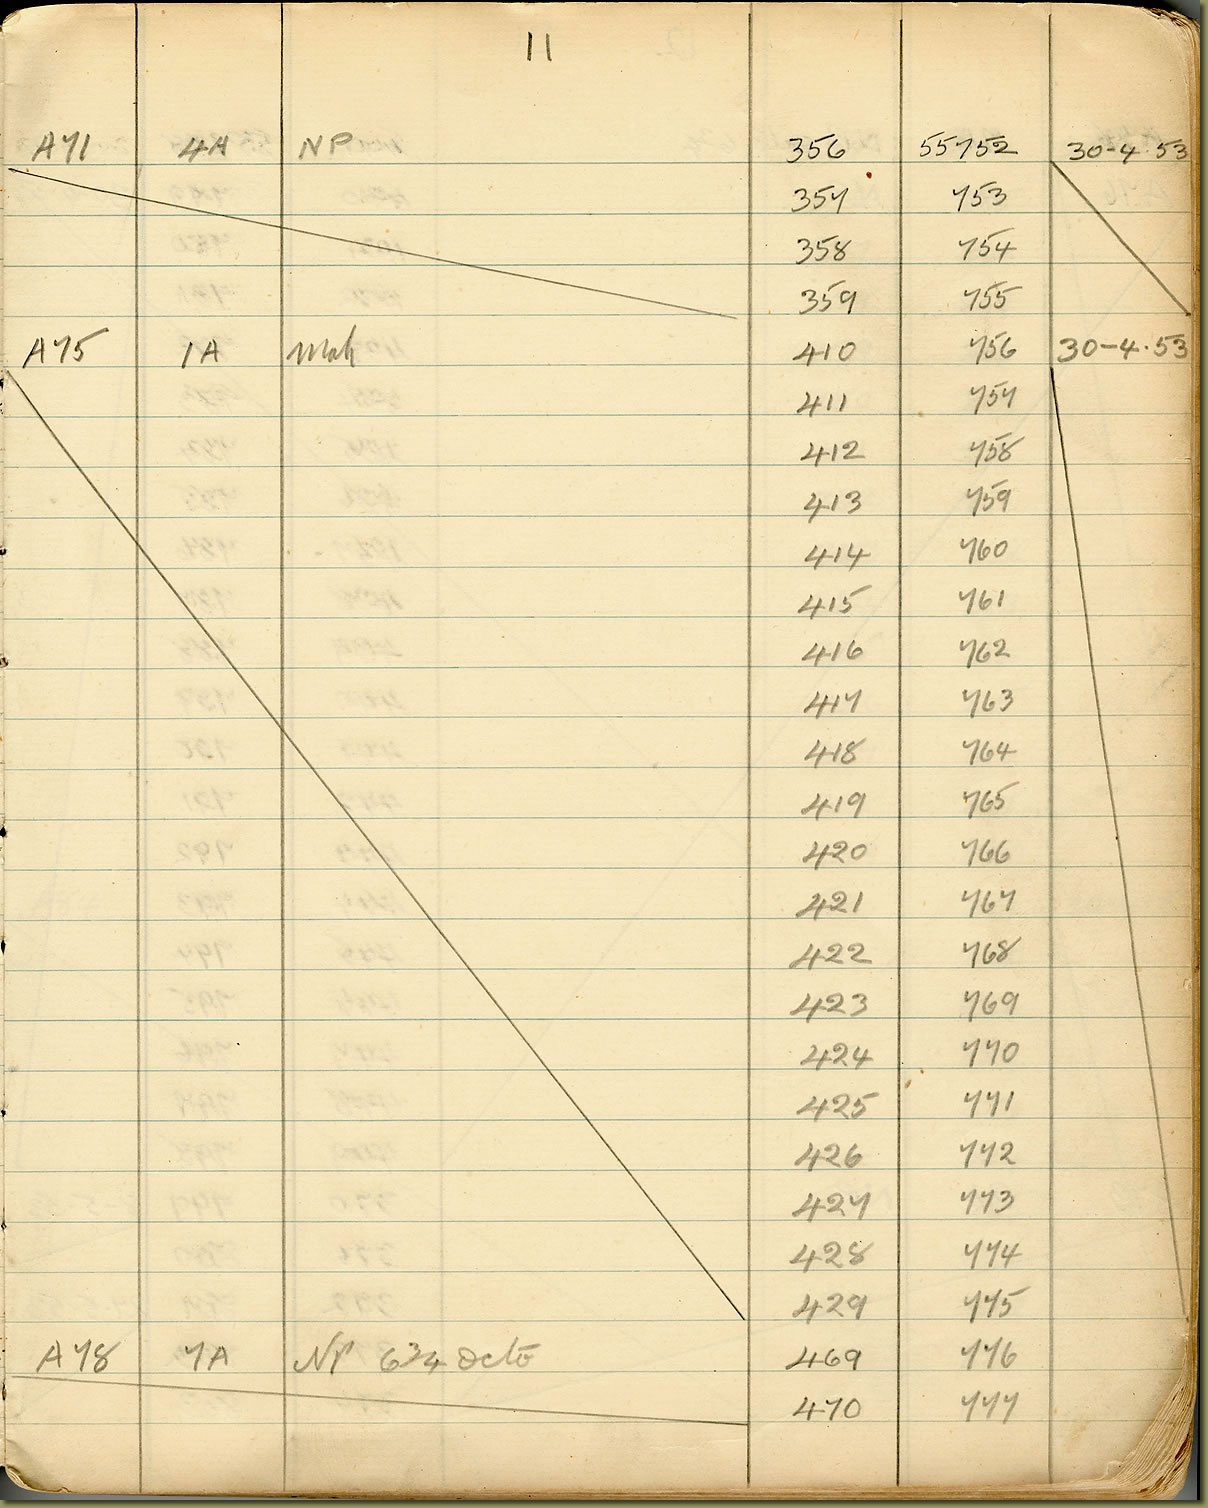 11
A71 4A NP 356 55752 30-4.53
357 753
358 754
359 755
A75 1A Mah 410 756 30-4.53
411 757
412 758
413 759
414 760
415 761
416 762
417 763
418 764
419 765
420 766
421 767
422 768
423 769
424 770
425 771
426 772
427 773
428 774
429 775
A78 7A NP 6¾ Octo 469 776
470 777